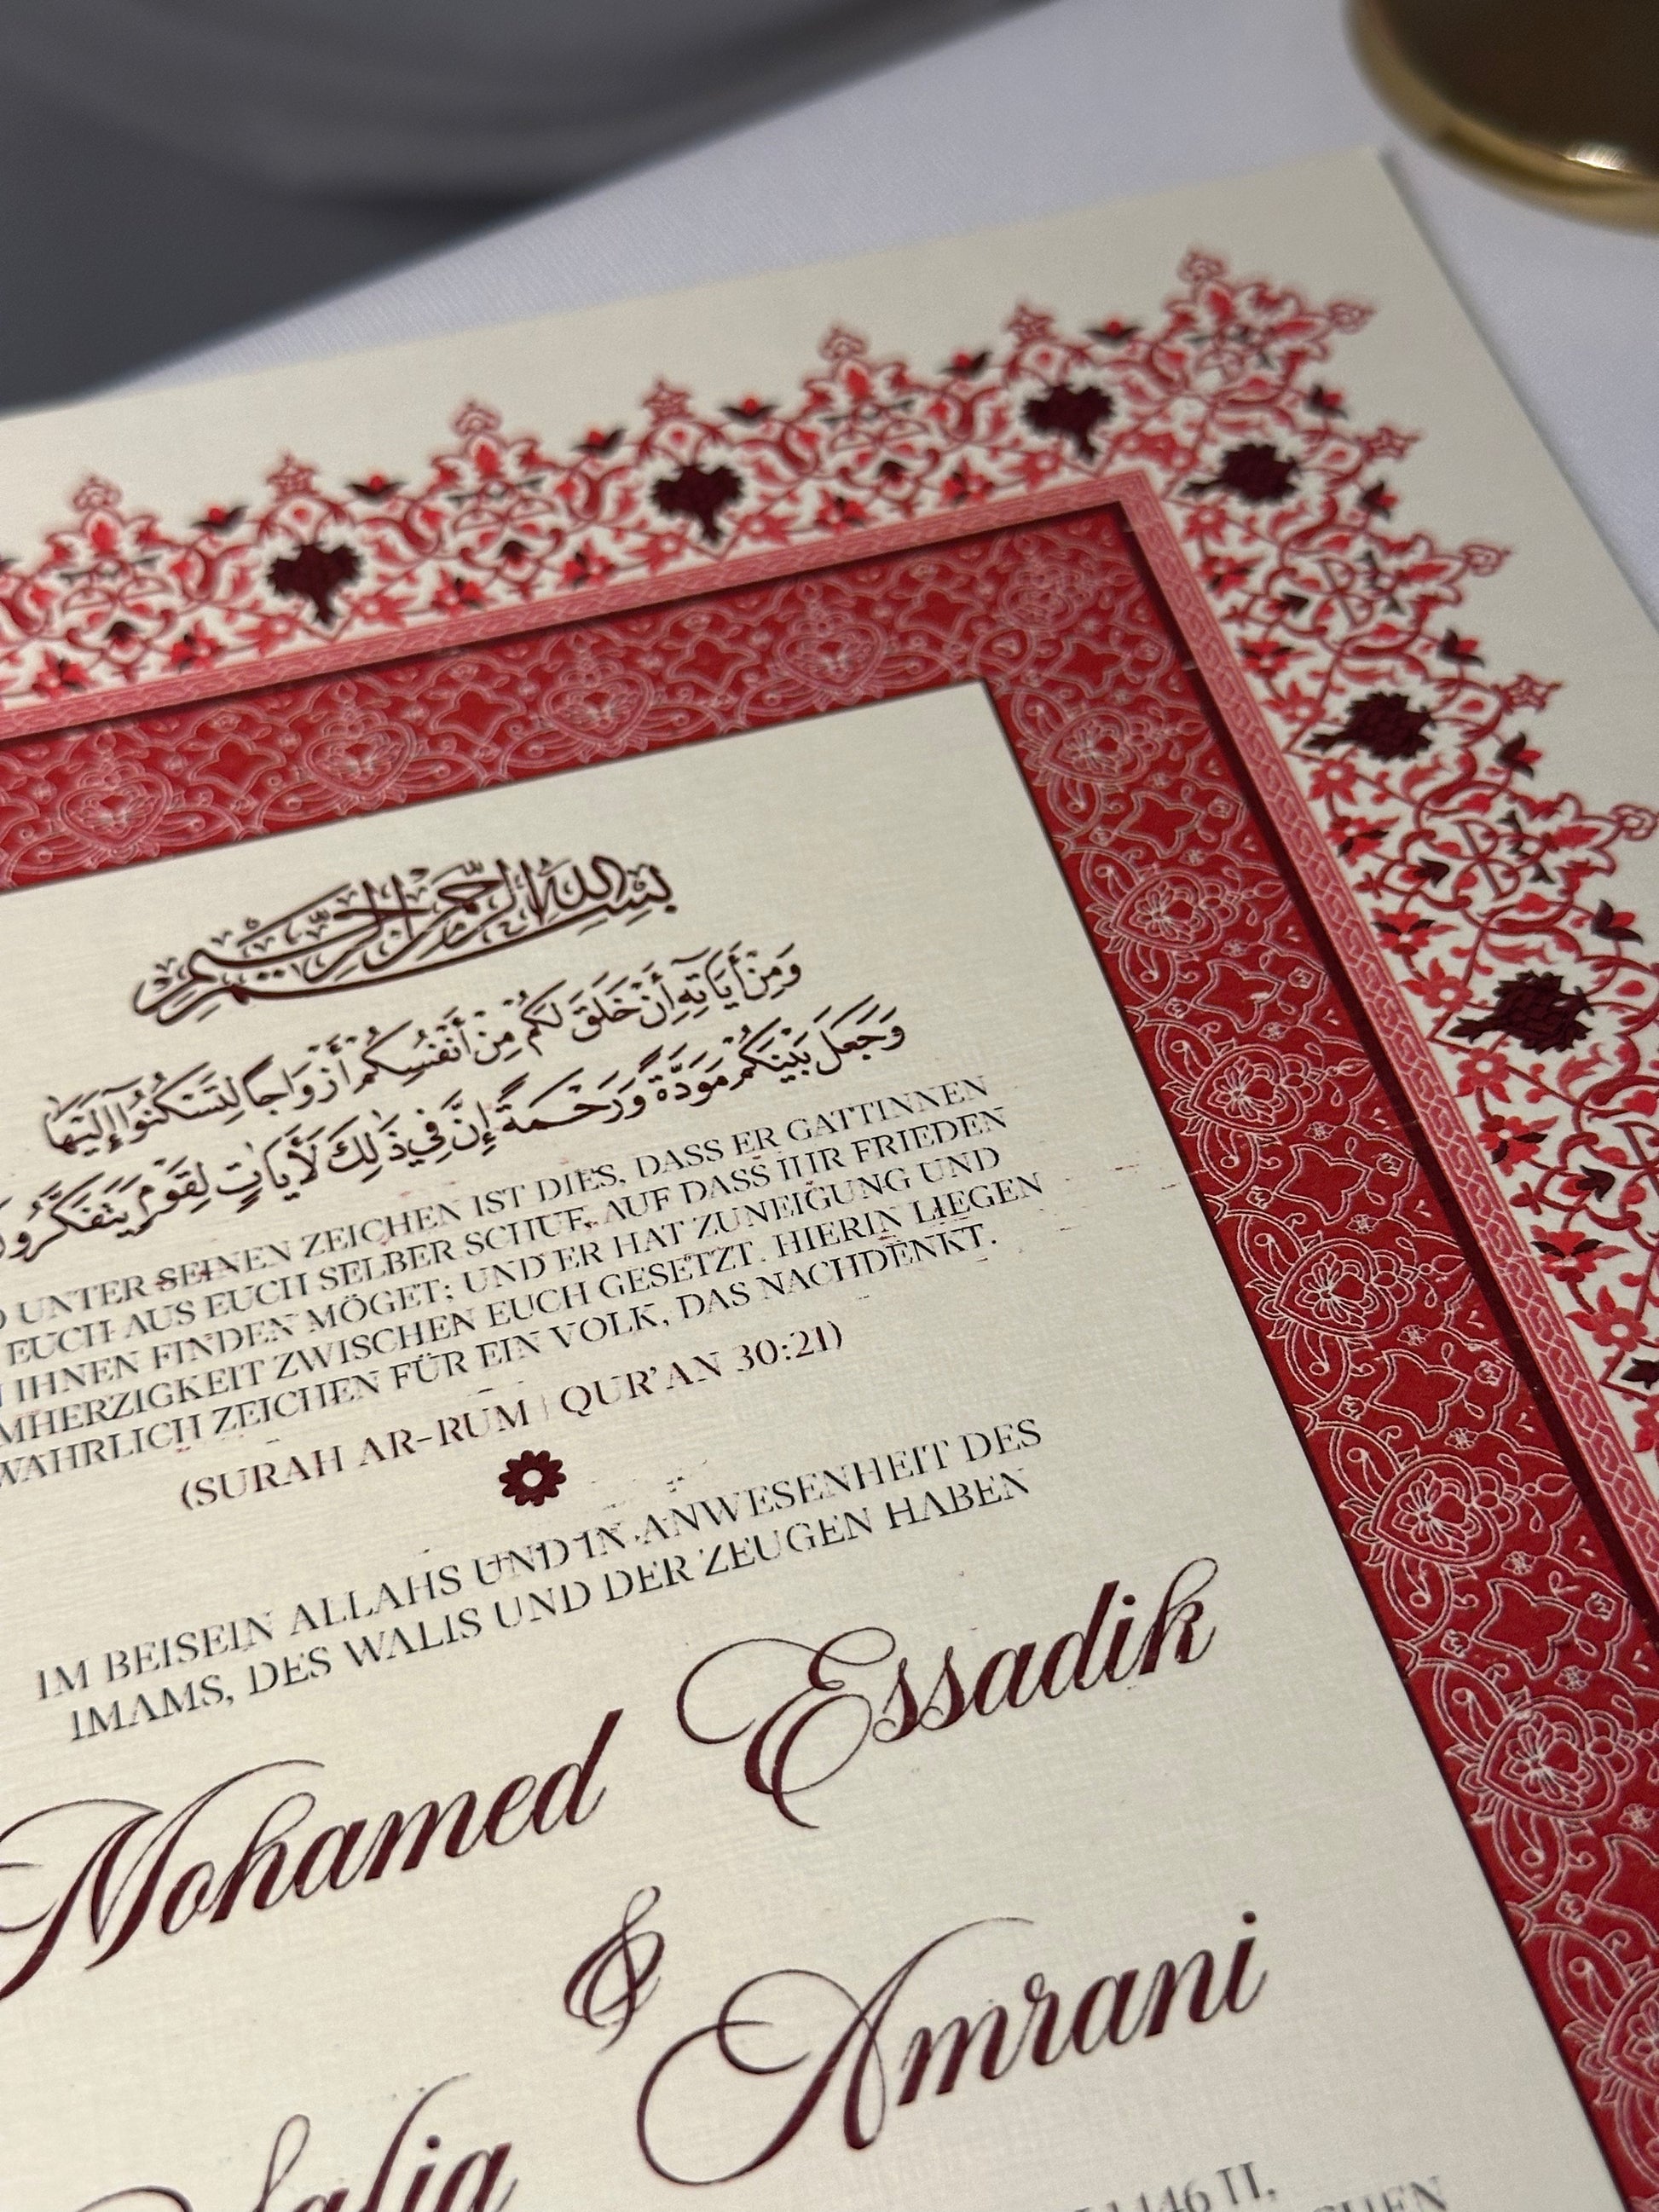 بسم الله الرحمن الرحيم
وَمِنْ أَيَاتِهِ أَنْ خَلَقَ لَكُمْ مِنْ أَنْفُسِكُمْ أَزْوَاجًا لِتَسْكُنُوا إِلَيْهَا
وَجَعَلَ بَيْنَكُمْ مَوَدَّةً وَرَحْمَةً إِنَّ فِي ذَلِكَ لَأَيَاتٍ لِقَوْمٍ يَتَفَكَّرُونَ
UNTER SEINEN ZEICHEN IST DIES, DASS ER GATTINNEN
EUCH AUS EUCH SELBER SCHUF, AUF DASS IHR FRIEDEN
IHNEN FINDEN MÖGET; UND ER HAT ZUNEIGUNG UND
MHERZIGKEIT ZWISCHEN EUCH GESETZT. HIERIN LIEGEN
WAHRLICH ZEICHEN FÜR EIN VOLK, DAS NACHDENKT.
(SURAH AR-RUM | QUR'AN 30:21)
IM BEISEIN ALLAHS UND IN ANWESENHEIT DES
IMAMS, DES WALIS UND DER ZEUGEN HABEN
Mohamed Essadik
&
Amrani
II,